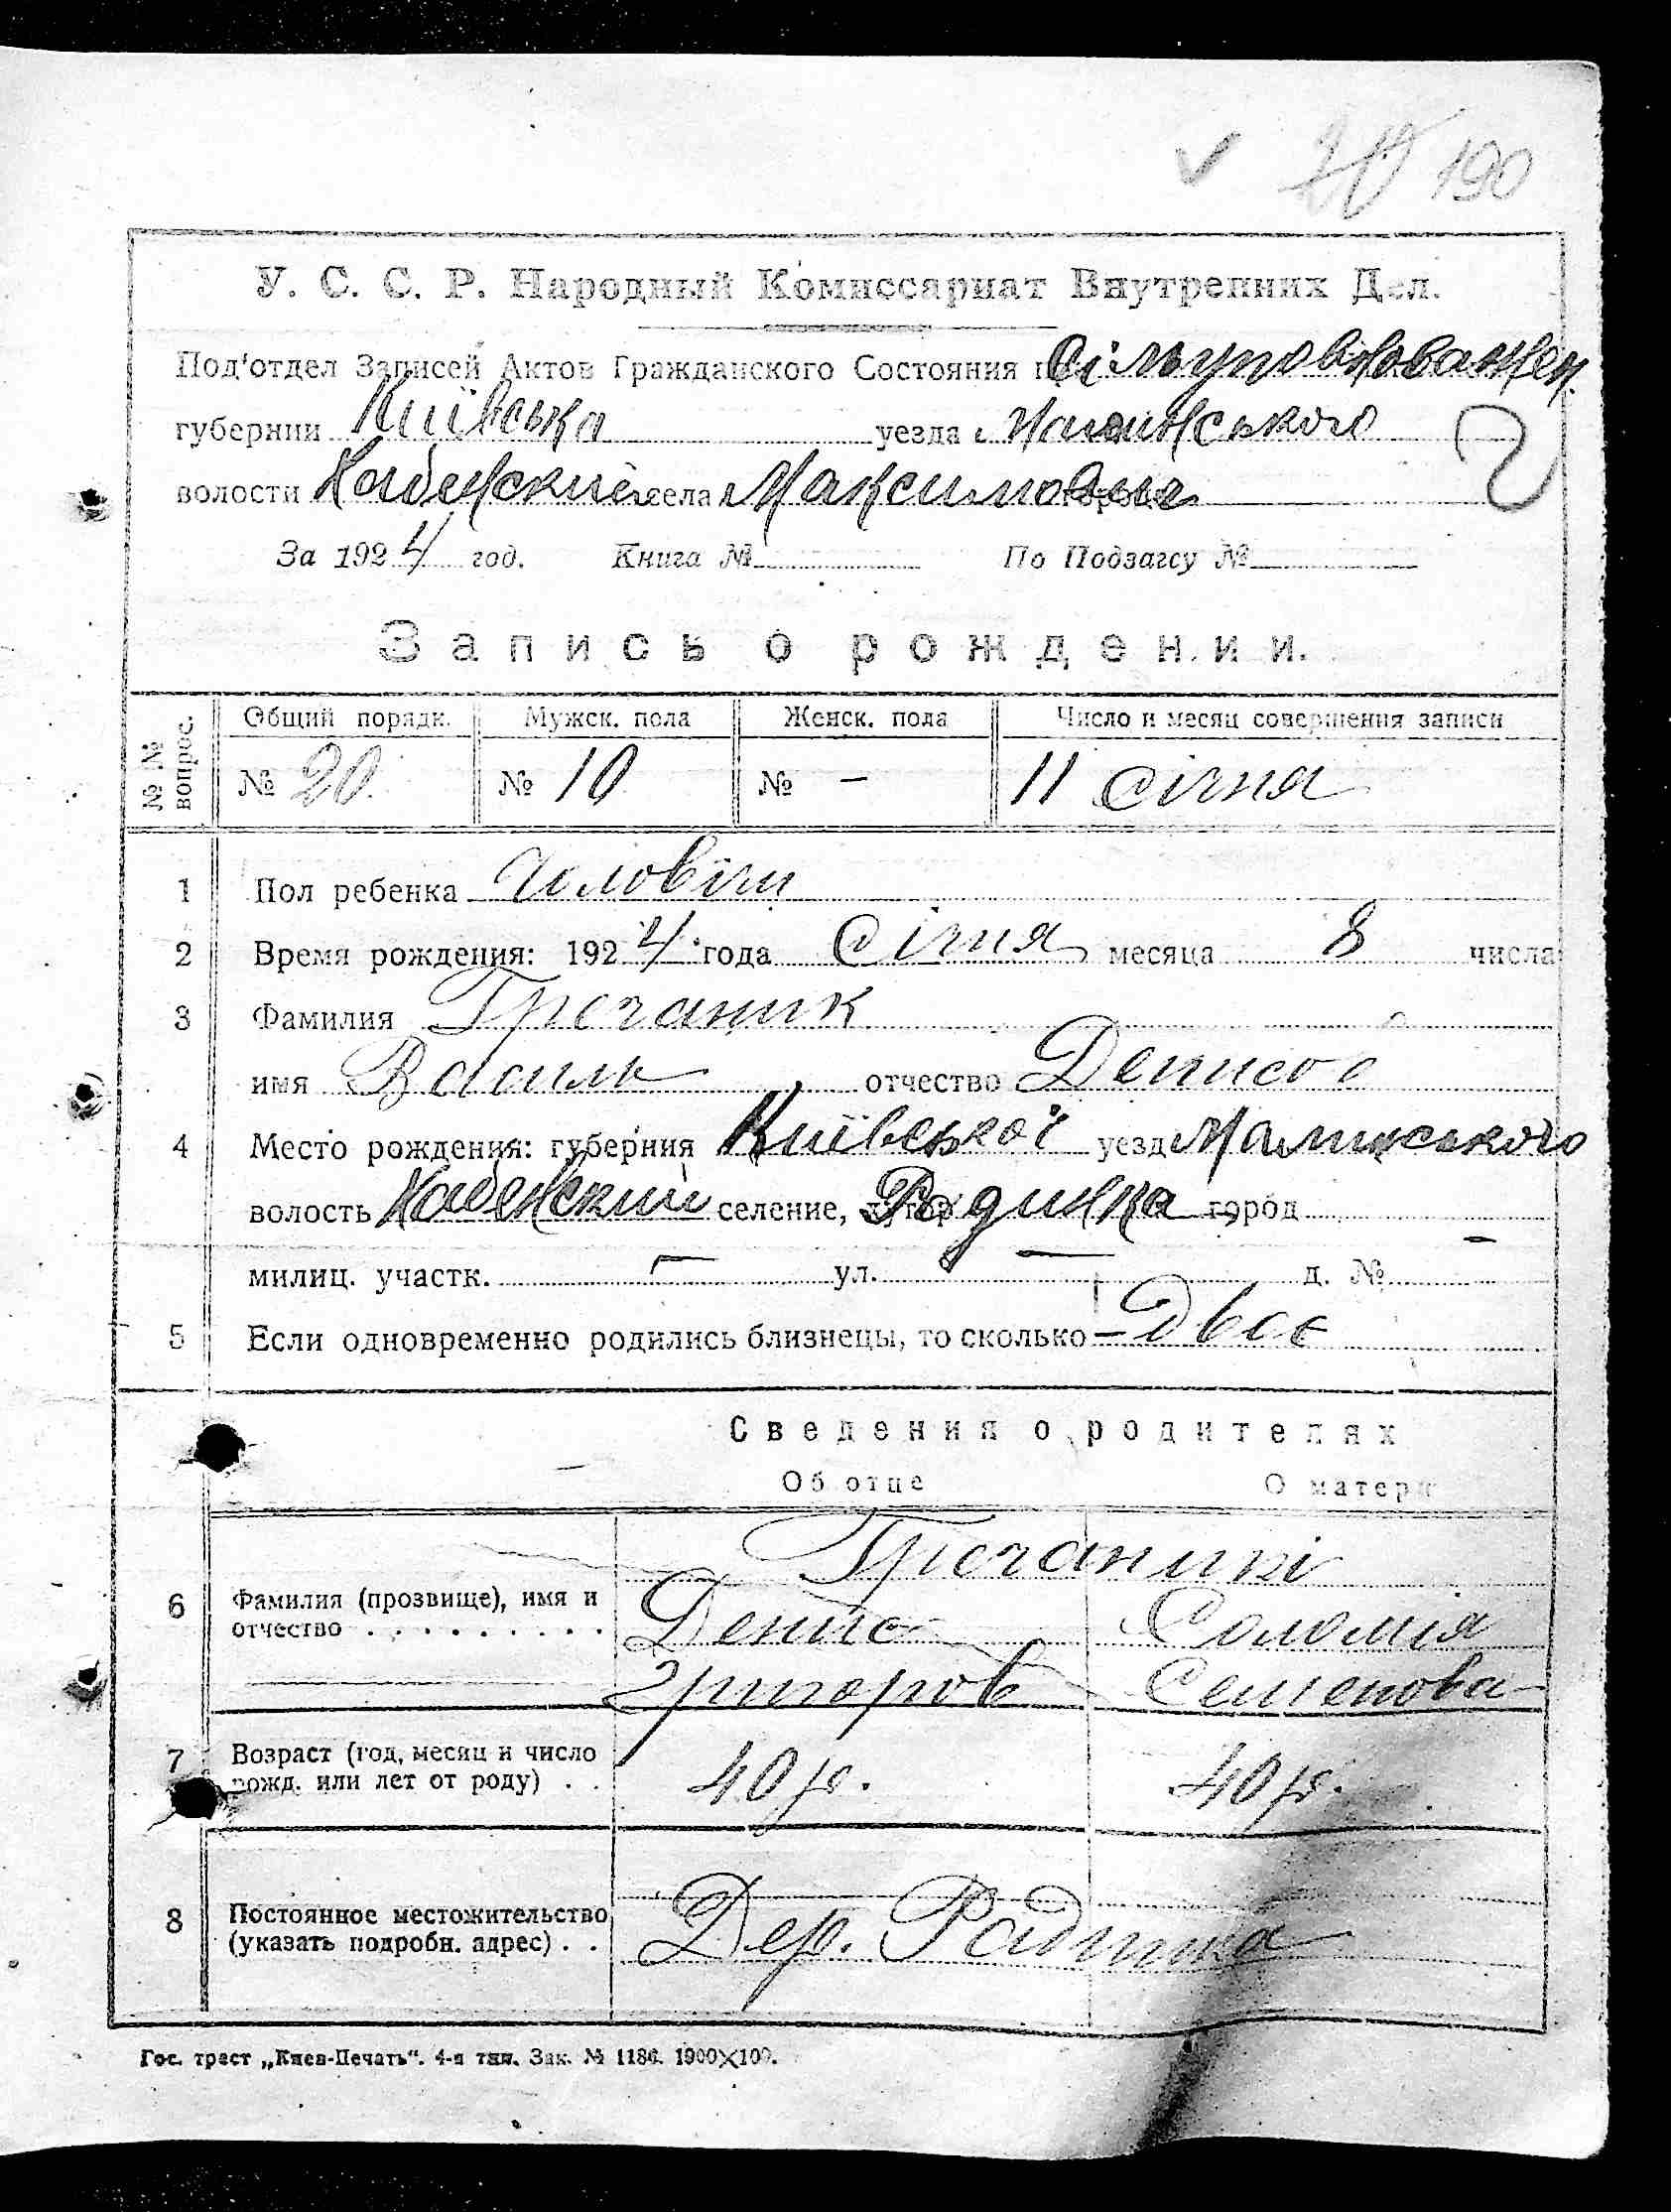 190
У. С. С. Р. Народный Комиссариат Внутренних Дел.
Под'отдел Записей Актов Гражданского Состояния при Сільуповноважен.
губернии Київська уезда
волости Хабенский села Максимович
За 1924 год. Книга № По Подзагсу №
Запись о рождении.
№№ вопрос. Общий порядк. Мужск. пола Женск. пола Число и месяц совершения записи
№ 20 № 10 № — 11 січня
1 Пол ребенка Чоловічи
2 Время рождения: 1924 года Січня месяца 8 числа
3 Фамилия Гречаник
имя Василь отчество Денисов
4 Место рождения: губерния Київської уезд Малинського
волость Хабенский селение, хутор Радинка город
милиц. участк. — ул. — д. № —
5 Если одновременно родились близнецы, то сколько — Двоє
Сведения о родителях
Об отце О матери
Гречаники
6 Фамилия (прозвище), имя и Денис Соломія
отчество . . . . . . . . . Григоров Семенова
7 Возраст (год, месяц и число
рожд. или лет от роду) . . 40 р. 40 р.
8 Постоянное местожительство
(указать подробн. адрес) . . Дер. Радинка
Гос. трест „Киев-Печать“. 4-я тип. Зак. № 1186. 1900×100.